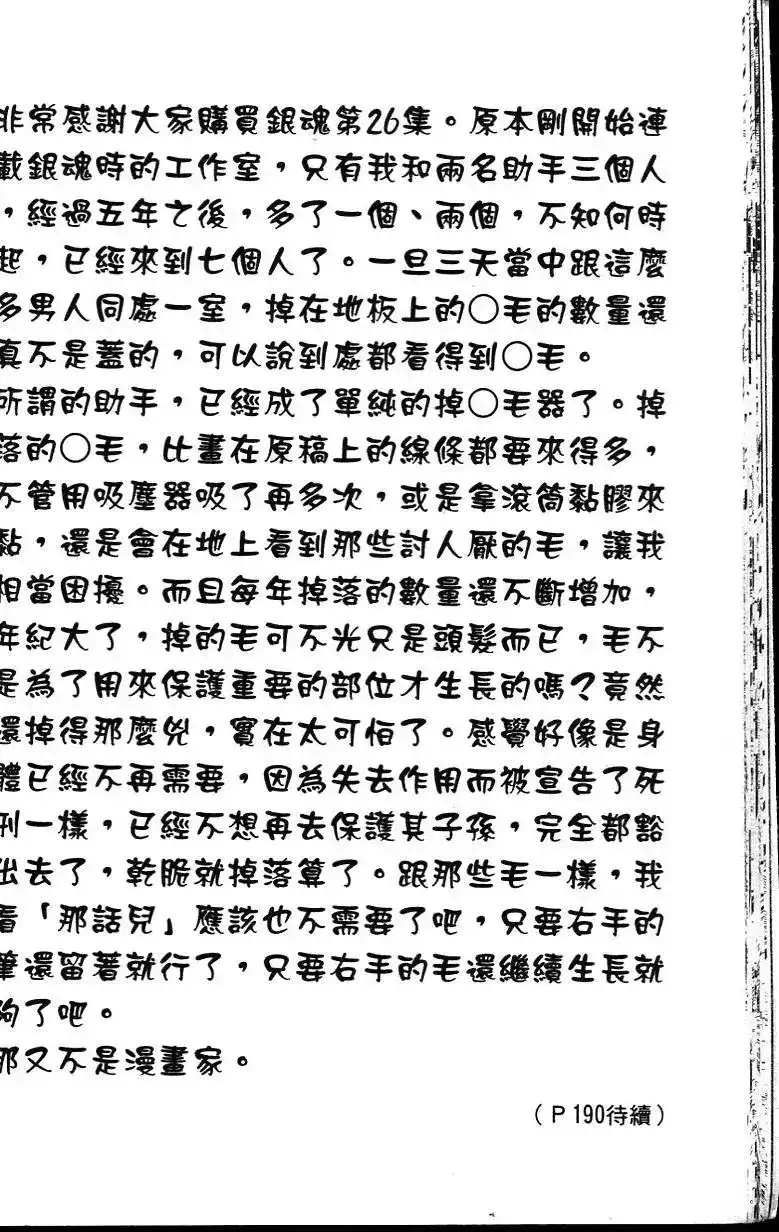 非常感謝大家購買銀魂第26集。原本剛開始連
載銀魂時的工作室，只有我和兩名助手三個人
，經過五年之後，多了一個、兩個，不知何時
起，已經來到七個人了。一旦三天當中跟這麼
多男人同處一室，掉在地板上的○毛的數量還
真不是蓋的，可以說到處都看得到○毛。
所謂的助手，已經成了單純的掉○毛器了。掉
落的○毛，比畫在原稿上的線條都要來得多，
不管用吸塵器吸了再多次，或是拿滾筒黏膠來
黏，還是會在地上看到那些討人厭的毛，讓我
相當困擾。而且每年掉落的數量還不斷增加，
年紀大了，掉的毛可不光只是頭髮而已，毛不
是為了用來保護重要的部位才生長的嗎？竟然
還掉得那麼兇，實在太可怕了。感覺好像是身
體已經不再需要，因為失去作用而被宣告了死
刑一樣，已經不想再去保護其子孫，完全都豁
出去了，乾脆就掉落算了。跟那些毛一樣，我
看「那話兒」應該也不需要了吧，只要右手的
筆還留著就行了，只要右手的毛還繼續生長就
夠了吧。
那又不是漫畫家。
（P190待續）